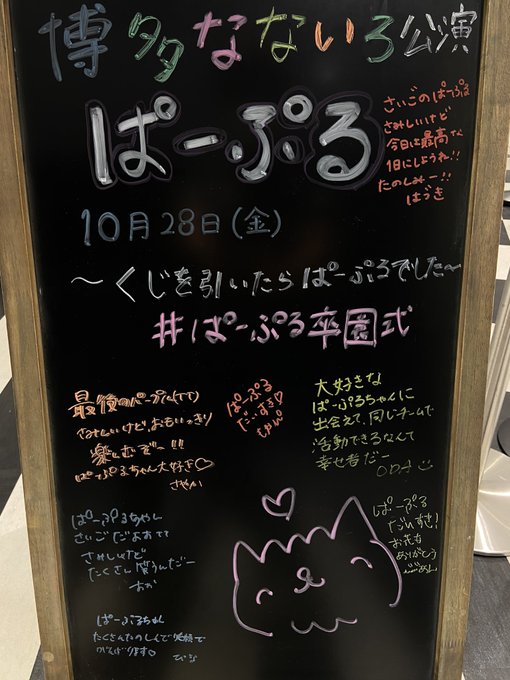 博多なないろ公演
ぱーぷる
さいごのぱーぷる
さみしいけど
今日は最高な
1日にしようね!!
たのしみー!!
はづき
10月28日(金)
〜くじを引いたらぱーぷるでした〜
#ぱーぷる卒園式
最後のぱーぷる(TT)
さみしいけど、おもいっきり
楽しむぞー!!!
ぱーぷるちゃん大好き♡
さやか
ぱーぷる
だいすき♡
大好きな
ぱーぷるちゃんに
出会えて、同じチームで
活動できるなんて
幸せ者だー
ODA
ぱーぷるちゃん
さいごだよ
さみしいけど
たくさん
ぱーぷる
だいすき!
お花も
ありがとう
ぱーぷるちゃん
たくさんたのしんで
がんばります♡